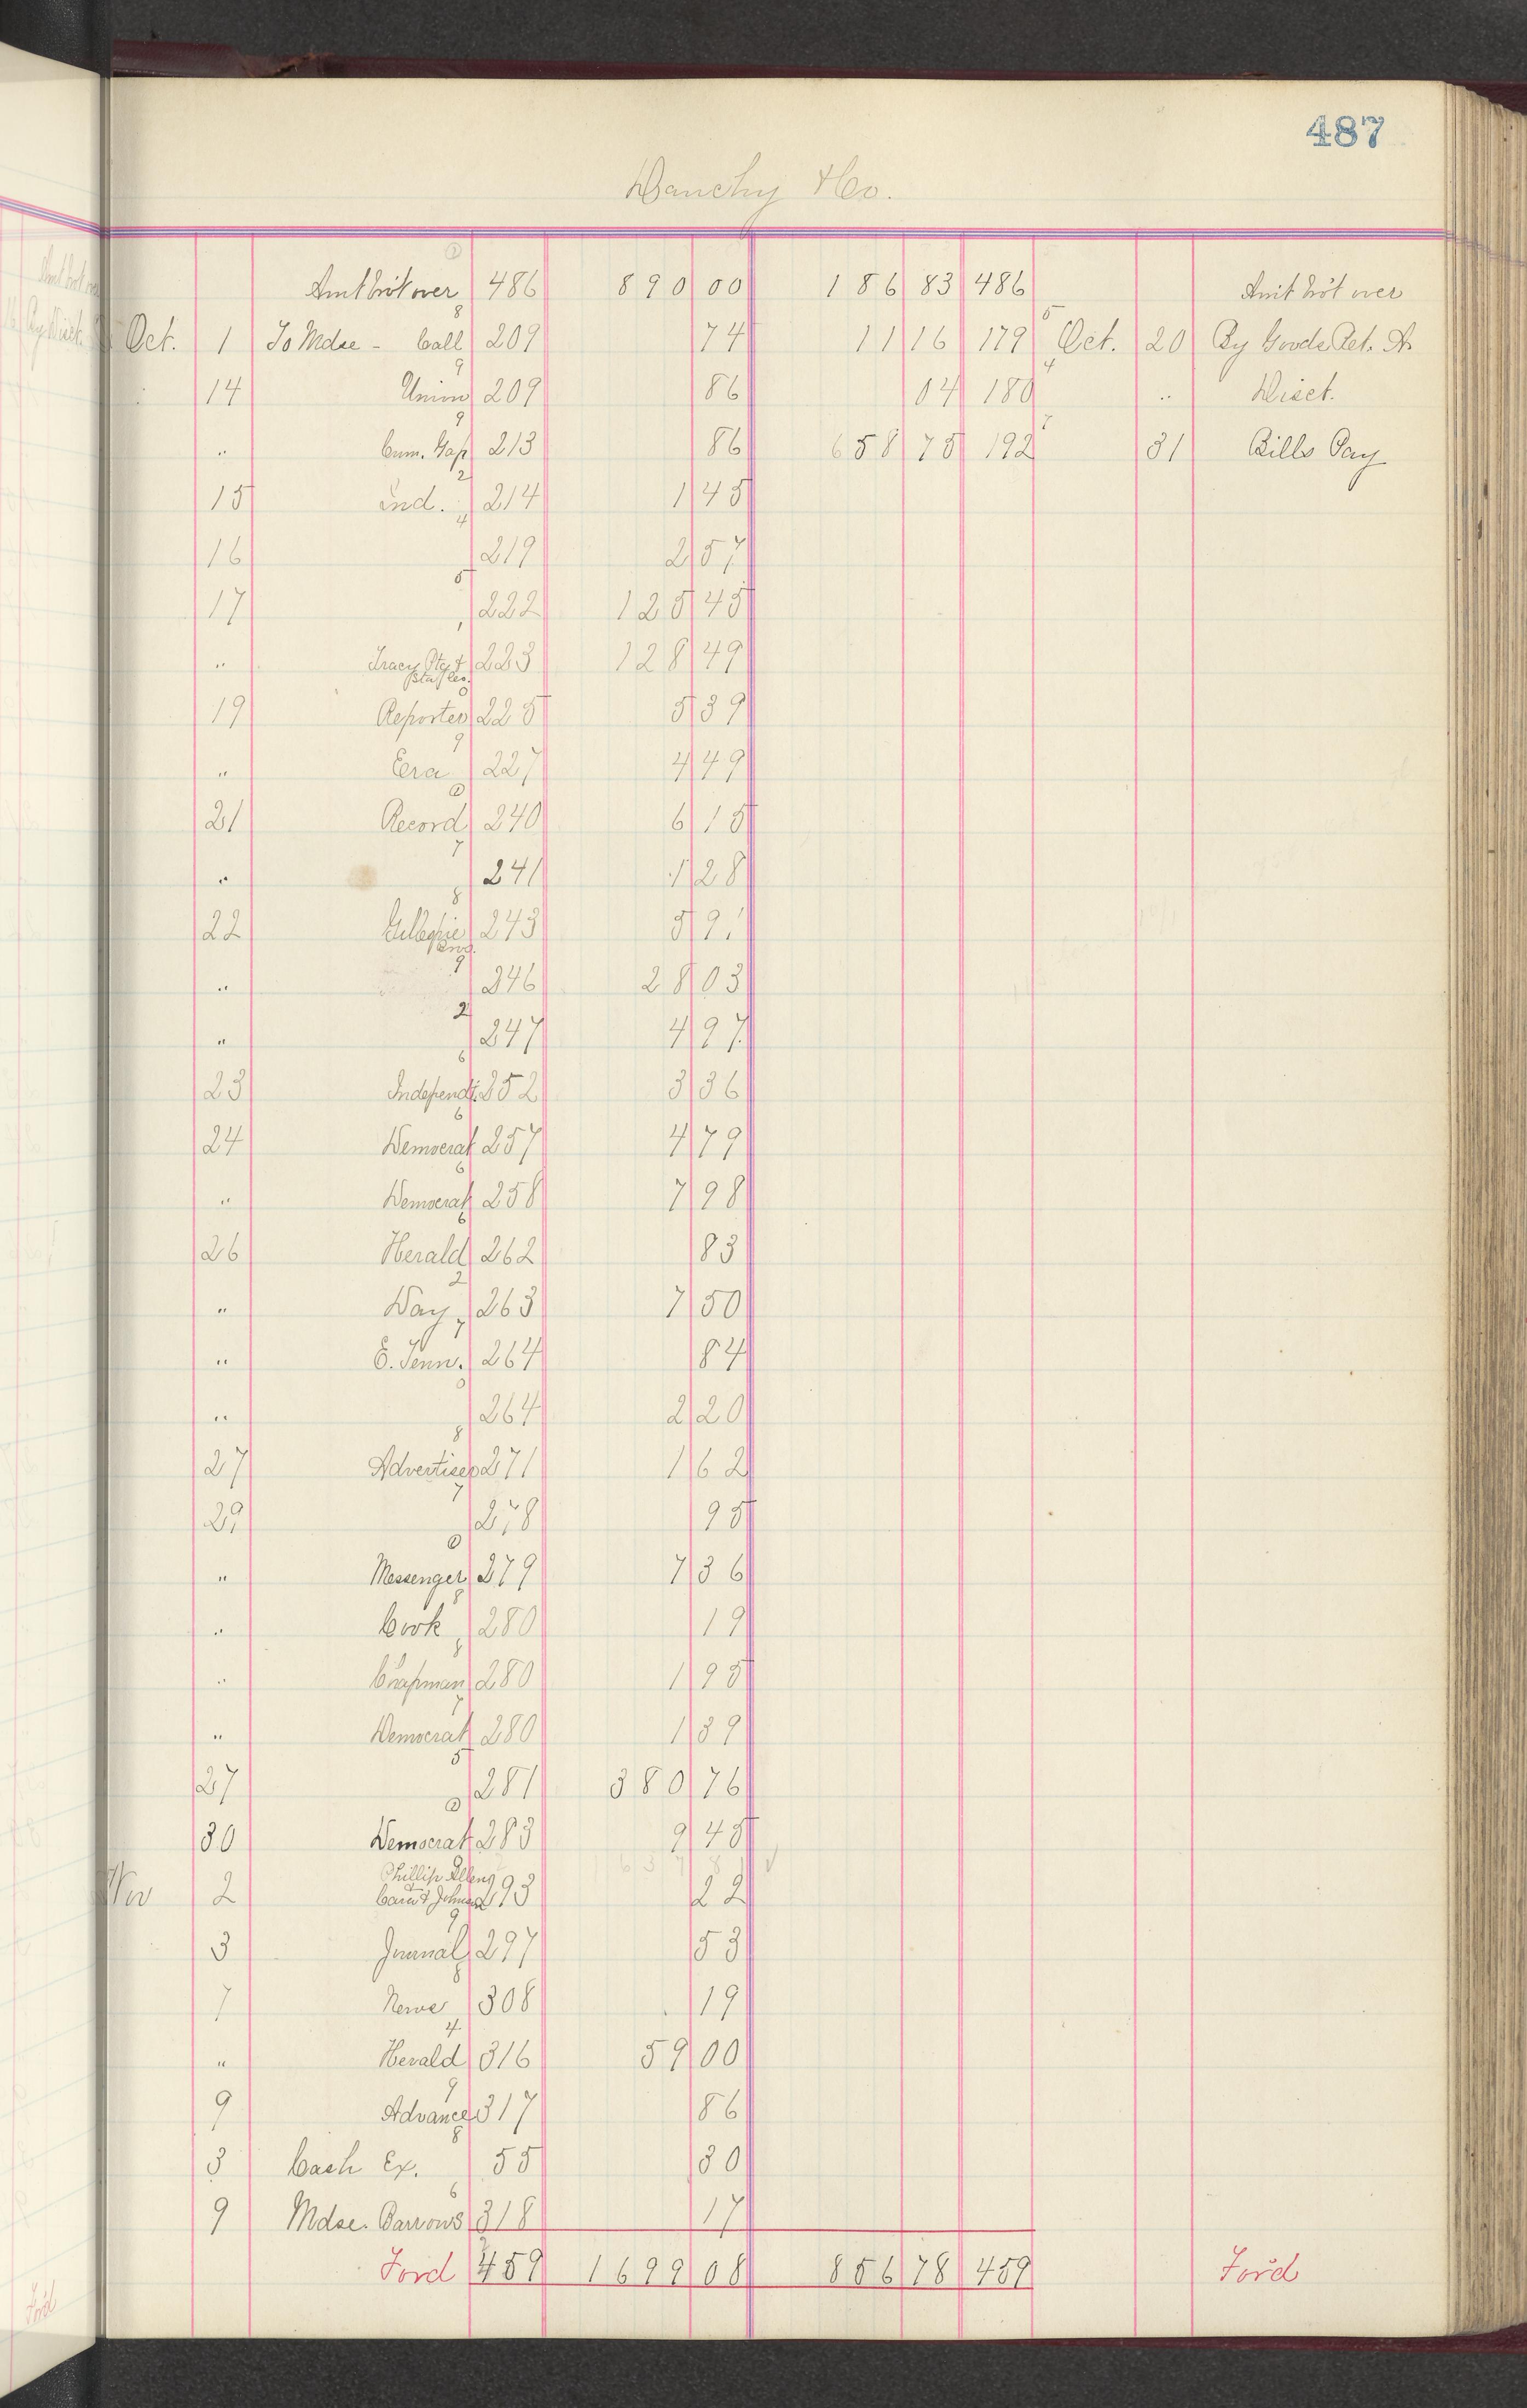 487
Danchy & Co.
Amt brôt over 486 890 00 186 83 486 Amt brôt over
Oct. 1 To Mdse - Call 209 74 11 16 179 Oct. 20 By Goods Ret.
14 Union 209 86 04 180 " Disct.
" Cum. Gap 213 86 658 75 192 31 Bills Pay
15 Ind. 214 1 45
16 219 2 57
17 222 125 45
" Tracy 223 128 49
19 Reporter 225 5 39
" Era 227 4 49
21 Record 240 6 15
" 241 1 28
22 Gillespie 243
" 246 28 03
" 247 4 97
23 Independt. 252 3 36
24 Democrat 257 4 79
" Democrat 258 7 98
26 Herald 262 83
" Day 263 7 50
" E. Tenn. 264 84
" 264 2 20
27 Advertiser 271 1 62
29 278 95
" Messenger 279 7 36
" Cook 280 19
" Chapman 280 1 95
" Democrat 280 1 39
27 281 380 76
30 Democrat 283 9 45
Nov 2 Phillip Allen 293 22
3 Journal 297 53
7 News 308 19
" Herald 316 59 00
9 Advance 317 86
3 Cash Ex. 55 30
9 Mdse. Barrows 318 17
Ford 459 1699 08 856 78 459 Ford